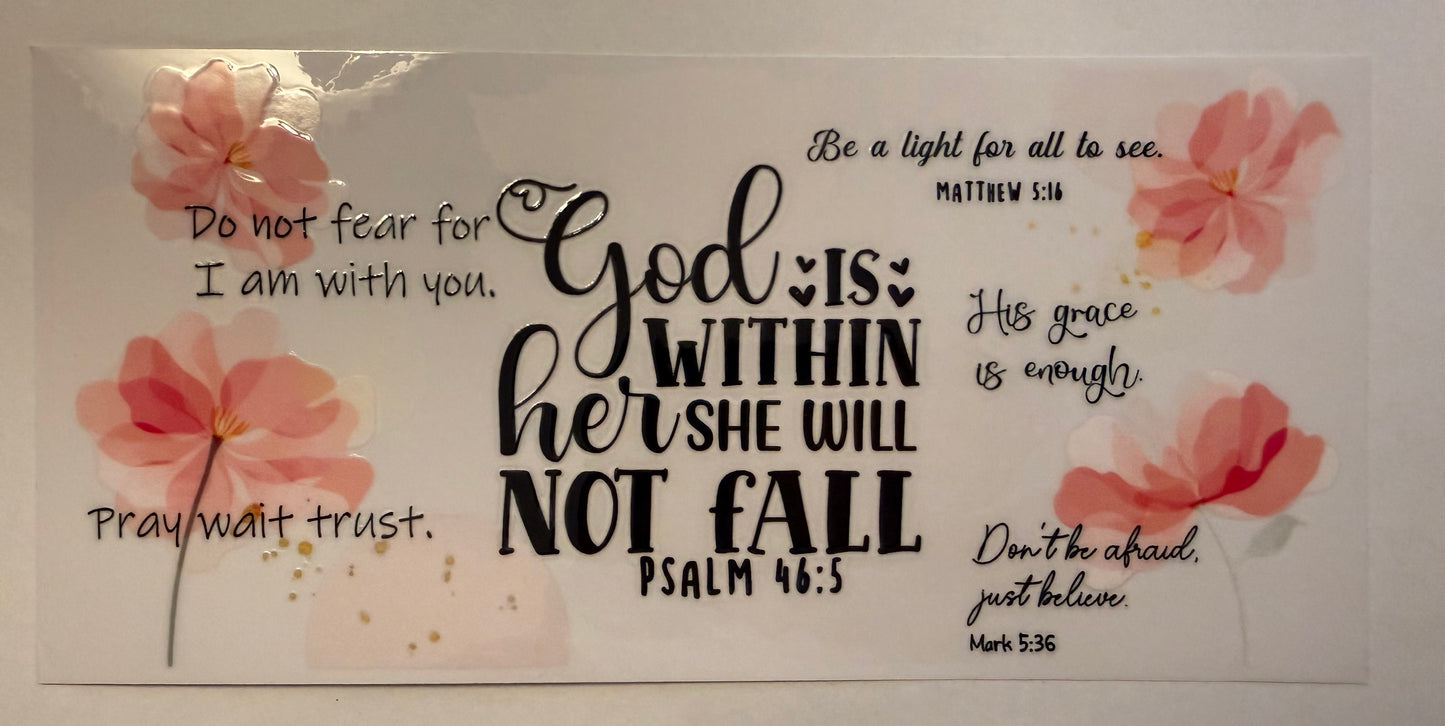 Do not fear for
I am with you.
Pray wait trust.
God IS
WITHIN
her SHE WILL
NOT fALL
PSALM 46:5
Be a light for all to see.
MATTHEW 5:16
His grace
is enough.
Don't be afraid,
just believe.
Mark 5:36